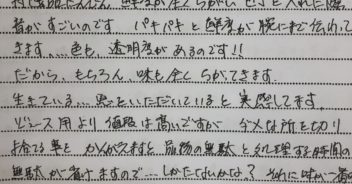 鮮度が全くちがい 包丁を入れた瞬
音がすごいのです パキパキと鮮度が腕にまで伝わって
きます、、色も、透明度があるのです!!
だから、もちろん、味も全くちがってきます。
生きている…、 といただいていると実感してます。
ジュース用より値段は高いですが ダメな所を切り
捨てる事と かんがえますと 品物の無駄と処理する時間の
無駄が省けますので… しかたないかな? それに味が一番